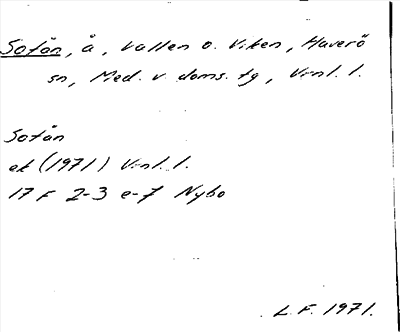 Sotån, å, Vallen o. Viken, Haverö
sn, Med. v. doms. tg, Vnl. l.
Sotån
ek (1971) Vnl. l.
17 F 2-3 e-f Nybo
L.F. 1971.